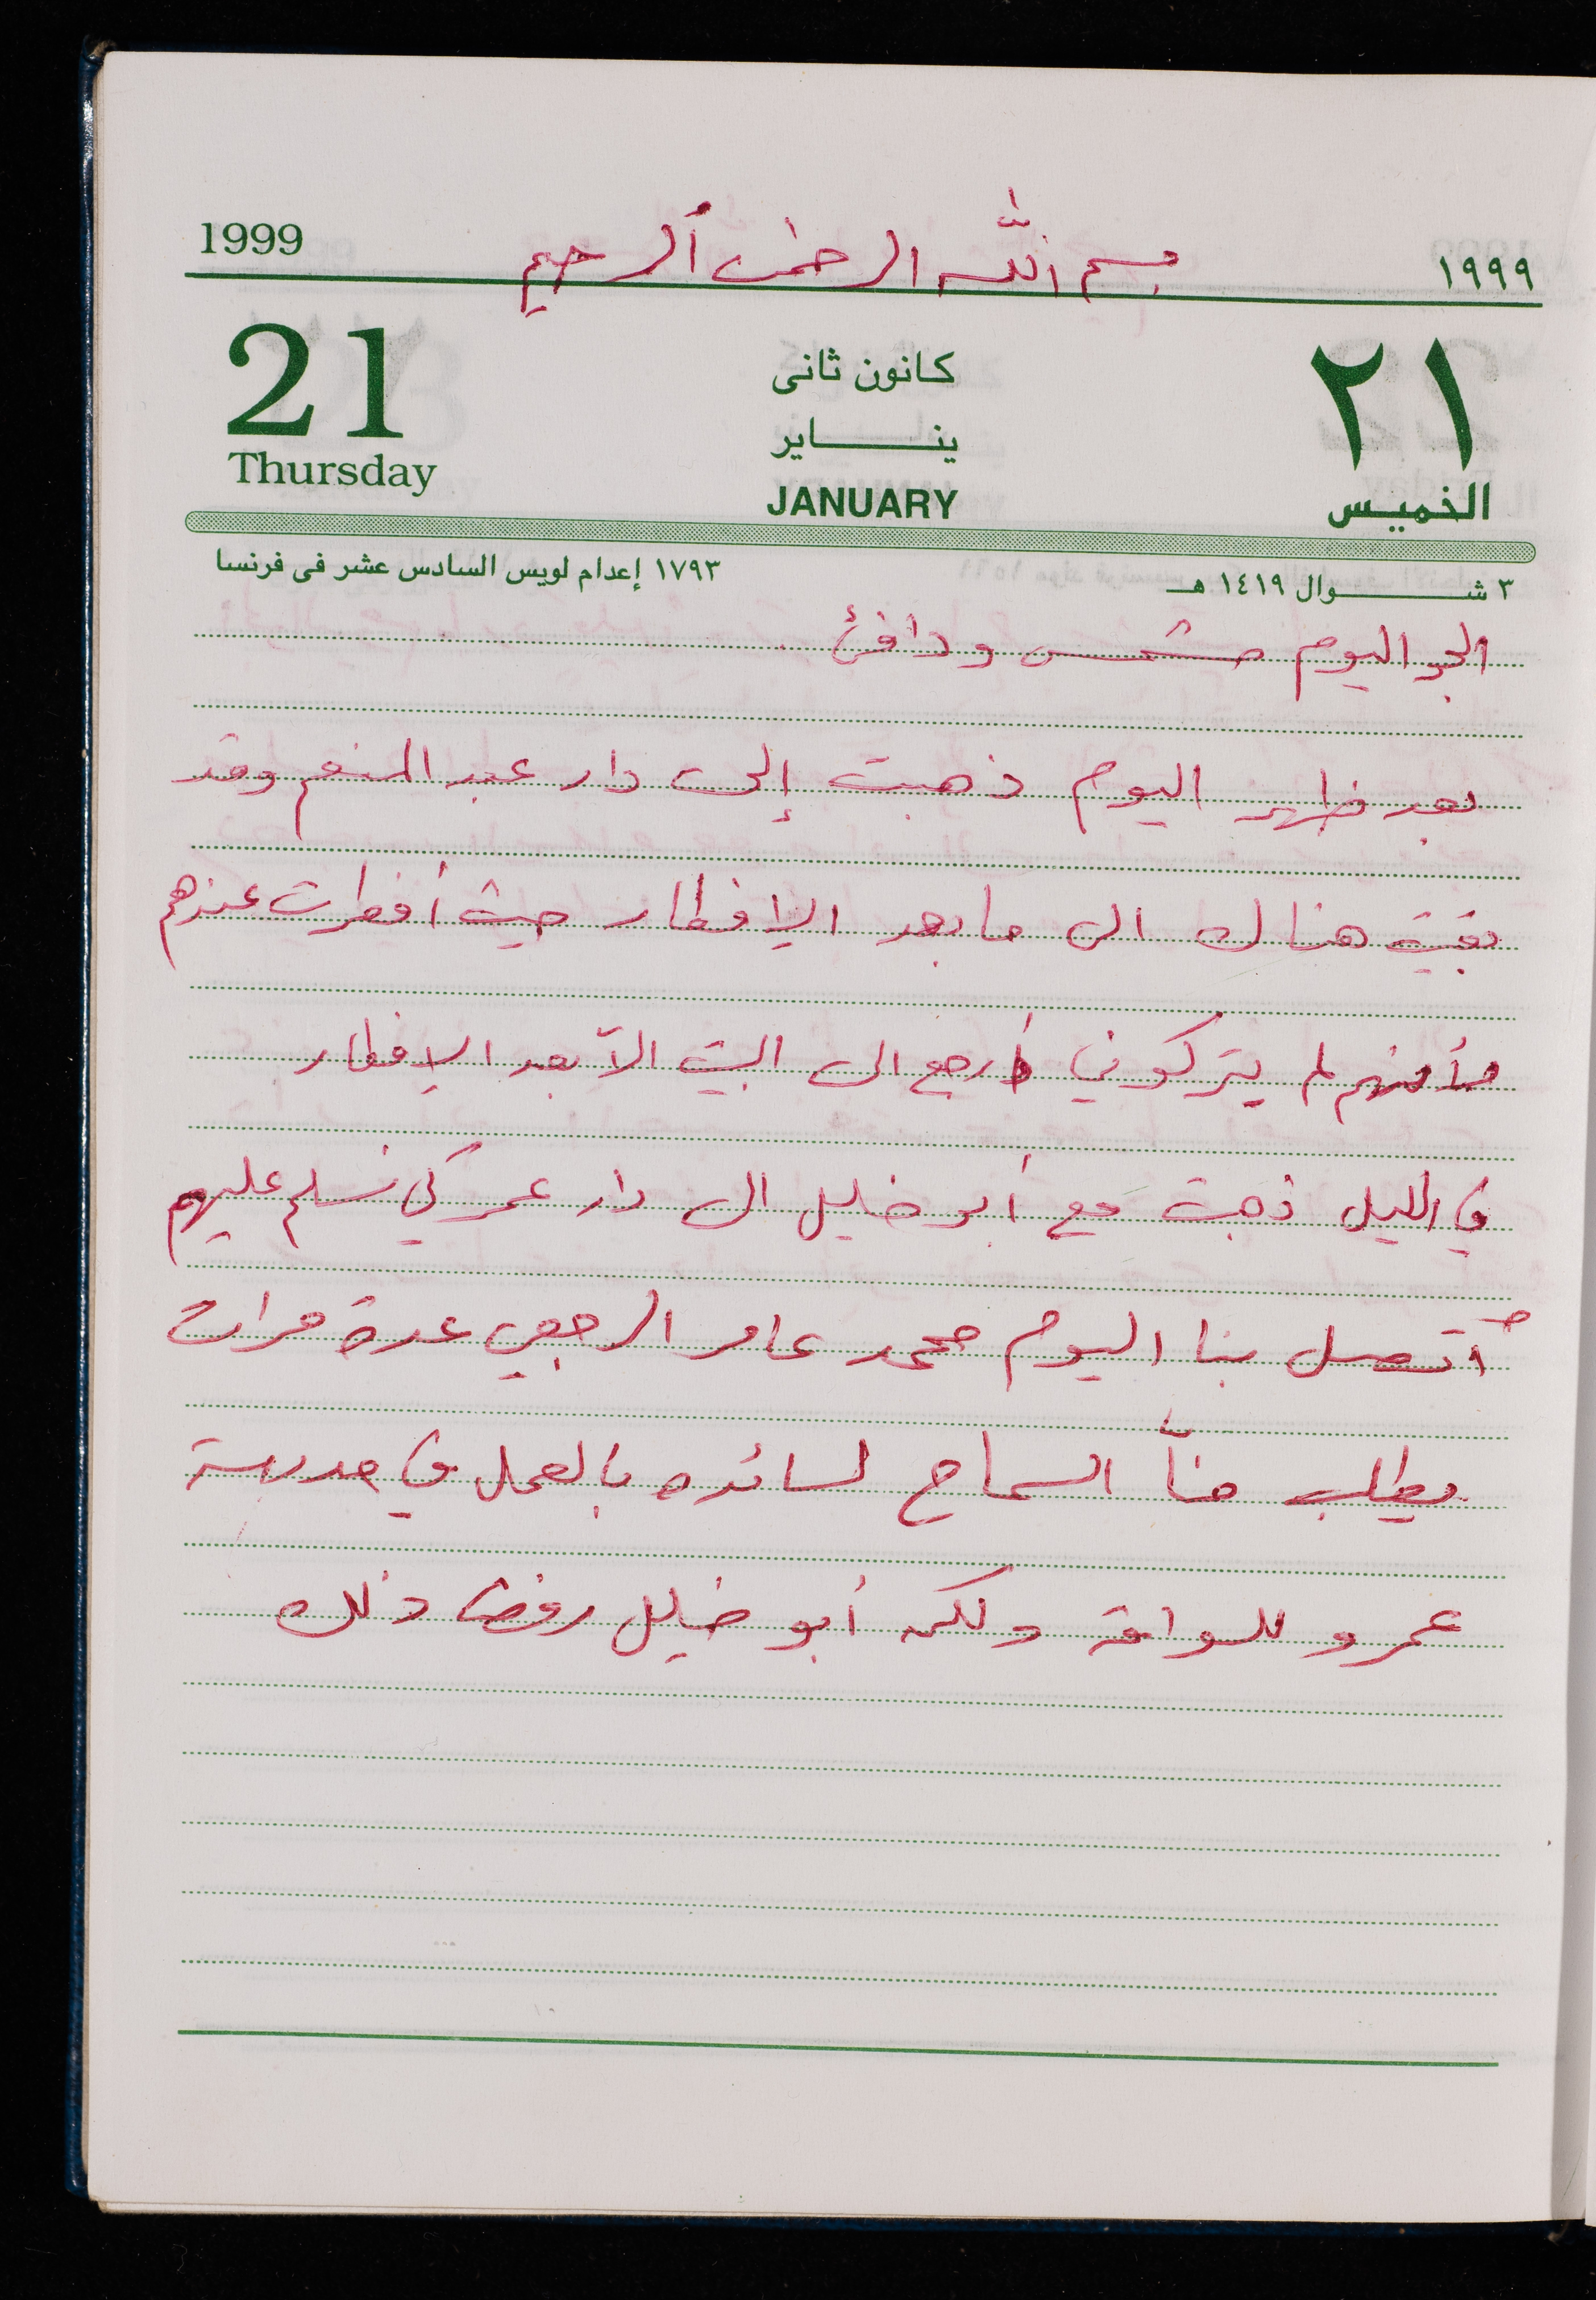 بسم الله الرحمن الرحيم
1999 ١٩٩٩
21 ٢١
كانون ثانى
ينـــاير
Thursday JANUARY الخميس
٣ شـــوال ١٤١٩ هـ ١٧٩٣ إعدام لويس السادس عشر فى فرنسا
الجو اليوم مشمس ودافئ
بعد ظهر اليوم ذهبت إلى دار عبد المنعم وقد
بقيت هناك الى ما بعد الإفطار حيث أفطرت عندهم
لم يتركوني أرجع الى البيت الآ بعد الإفطار
في الليل ذهبت مع أبو خليل الى دار عمر كي نسلم عليهم
أتصل بنا اليوم محمد عامر الرجبي عدة مرات
يطلب منّا السماح لسائده بالعمل في مدرسة
عمرو للسواقة ولكن أبو خليل رفض ذلك